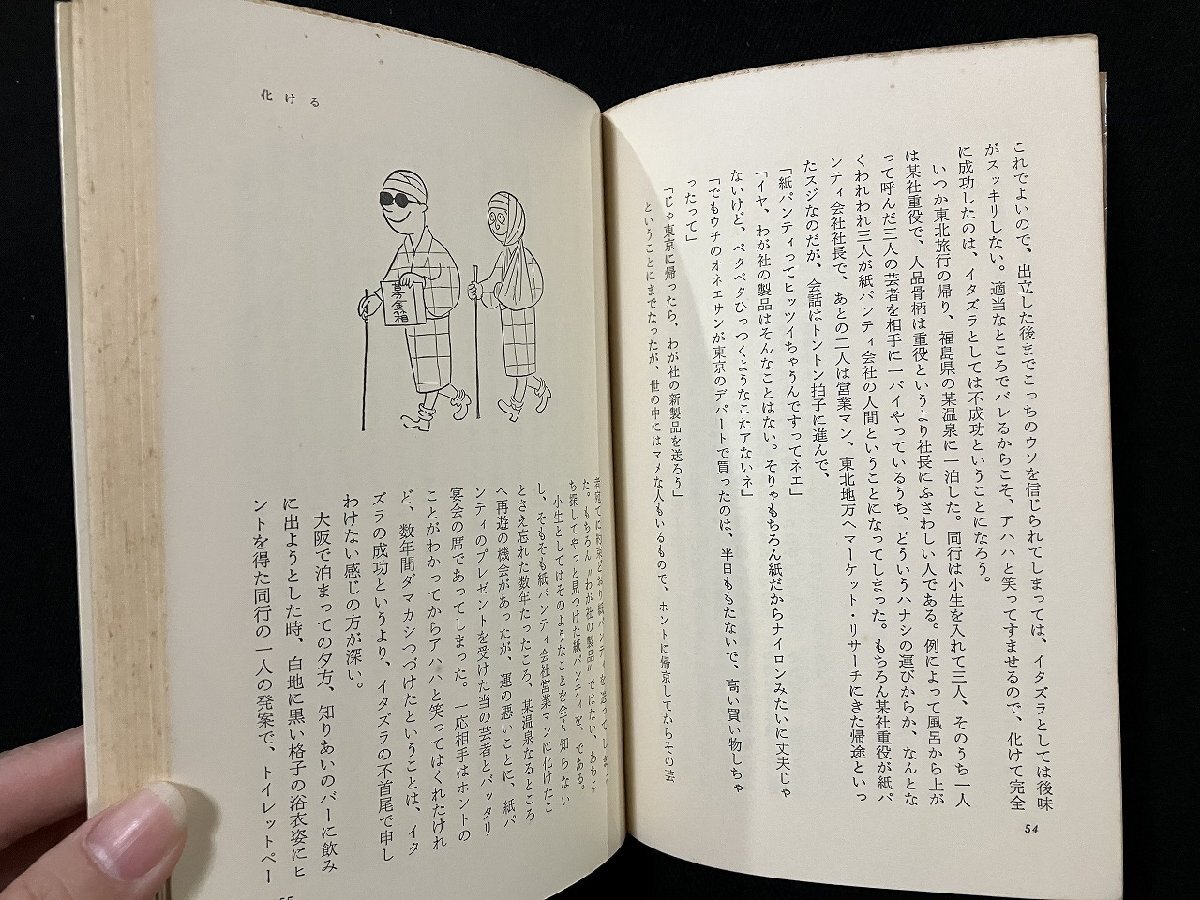 これでよいので、出立した後までこっちのウソを信じられてしまっては、イタズラとしては後味
がスッキリしない。適当なところでバレるからこそ、アハハと笑ってすませるので、化けて完全
に成功したのは、イタズラとしては不成功ということになろう。
いつか東北旅行の帰り、福島県の某温泉に一泊した。同行は小生を入れて三人、そのうち一人
は某社重役で、人品骨柄は重役というより社長にふさわしい人である。例によって風呂から上が
って呼んだ三人の芸者を相手に一パイやっているうち、どういうハナシの運びからか、なんとな
くわれわれ三人が紙パンティ会社の人間ということになってしまった。もちろん某社重役が紙パ
ンティ会社社長で、あとの二人は営業マン、東北地方へマーケット・リサーチにきた帰途といっ
たスジなのだが、会話はトントン拍子に進んで、
「紙パンティってヒッツイちゃうんですってネエ」
「イヤ、わが社の製品はそんなことはない。そりゃもちろん紙だからナイロンみたいに丈夫じゃ
ないけど、ペタペタひっつくようなこたアないネ」
「でもウチのオネエサンが東京のデパートで買ったのは、半日ももたないで、高い買い物しちゃ
ったって」
「じゃ東京に帰ったら、わが社の新製品を送ろう」
ということにまでなったが、世の中にはマメな人もいるもので、ホントに帰京してからその芸
54
化ける
募金箱
た。もちろん"わが社の製品"ではない、あちこ
ち探してやっと見つけた紙パンティを、である。
小生としてはそのようなことは全く知らない
し、そもそも紙パンティ会社営業マンに化けたこ
とさえ忘れた数年たったころ、某温泉なるところ
へ再遊の機会があったが、運の悪いことに、紙パ
ンティのプレゼントを受けた当の芸者とバッタリ
宴会の席であってしまった。一応相手はホントの
ことがわかってからアハハと笑ってはくれたけれ
ど、数年間ダマカシつづけたということは、イタ
ズラの成功というより、イタズラの不首尾で申し
わけない感じの方が深い。
大阪で泊まっての夕方、知りあいのバーに飲み
に出ようとした時、白地に黒い格子の浴衣姿にヒ
ントを得た同行の一人の発案で、トイレットペー
55